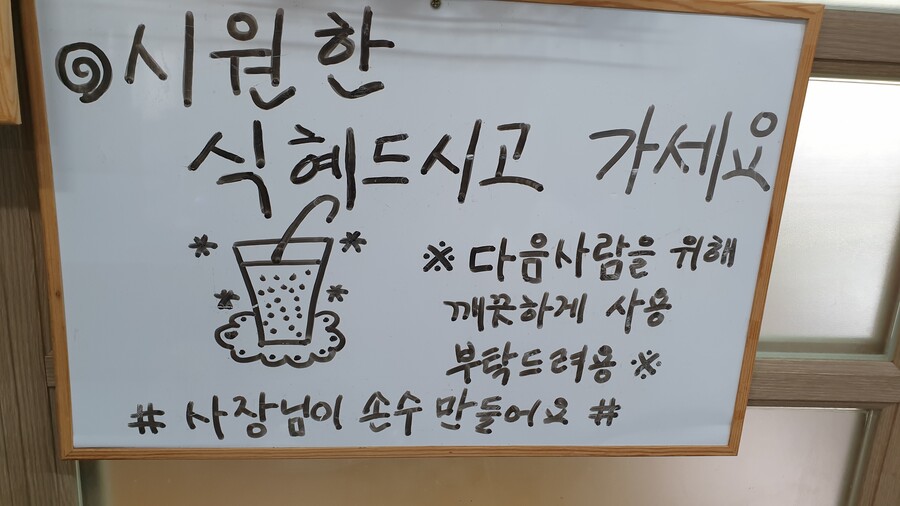 시원한
식혜드시고 가세요
※ 다음사람을 위해
깨끗하게 사용
부탁드려용 ※
# 사장님이 손수 만들어요 #